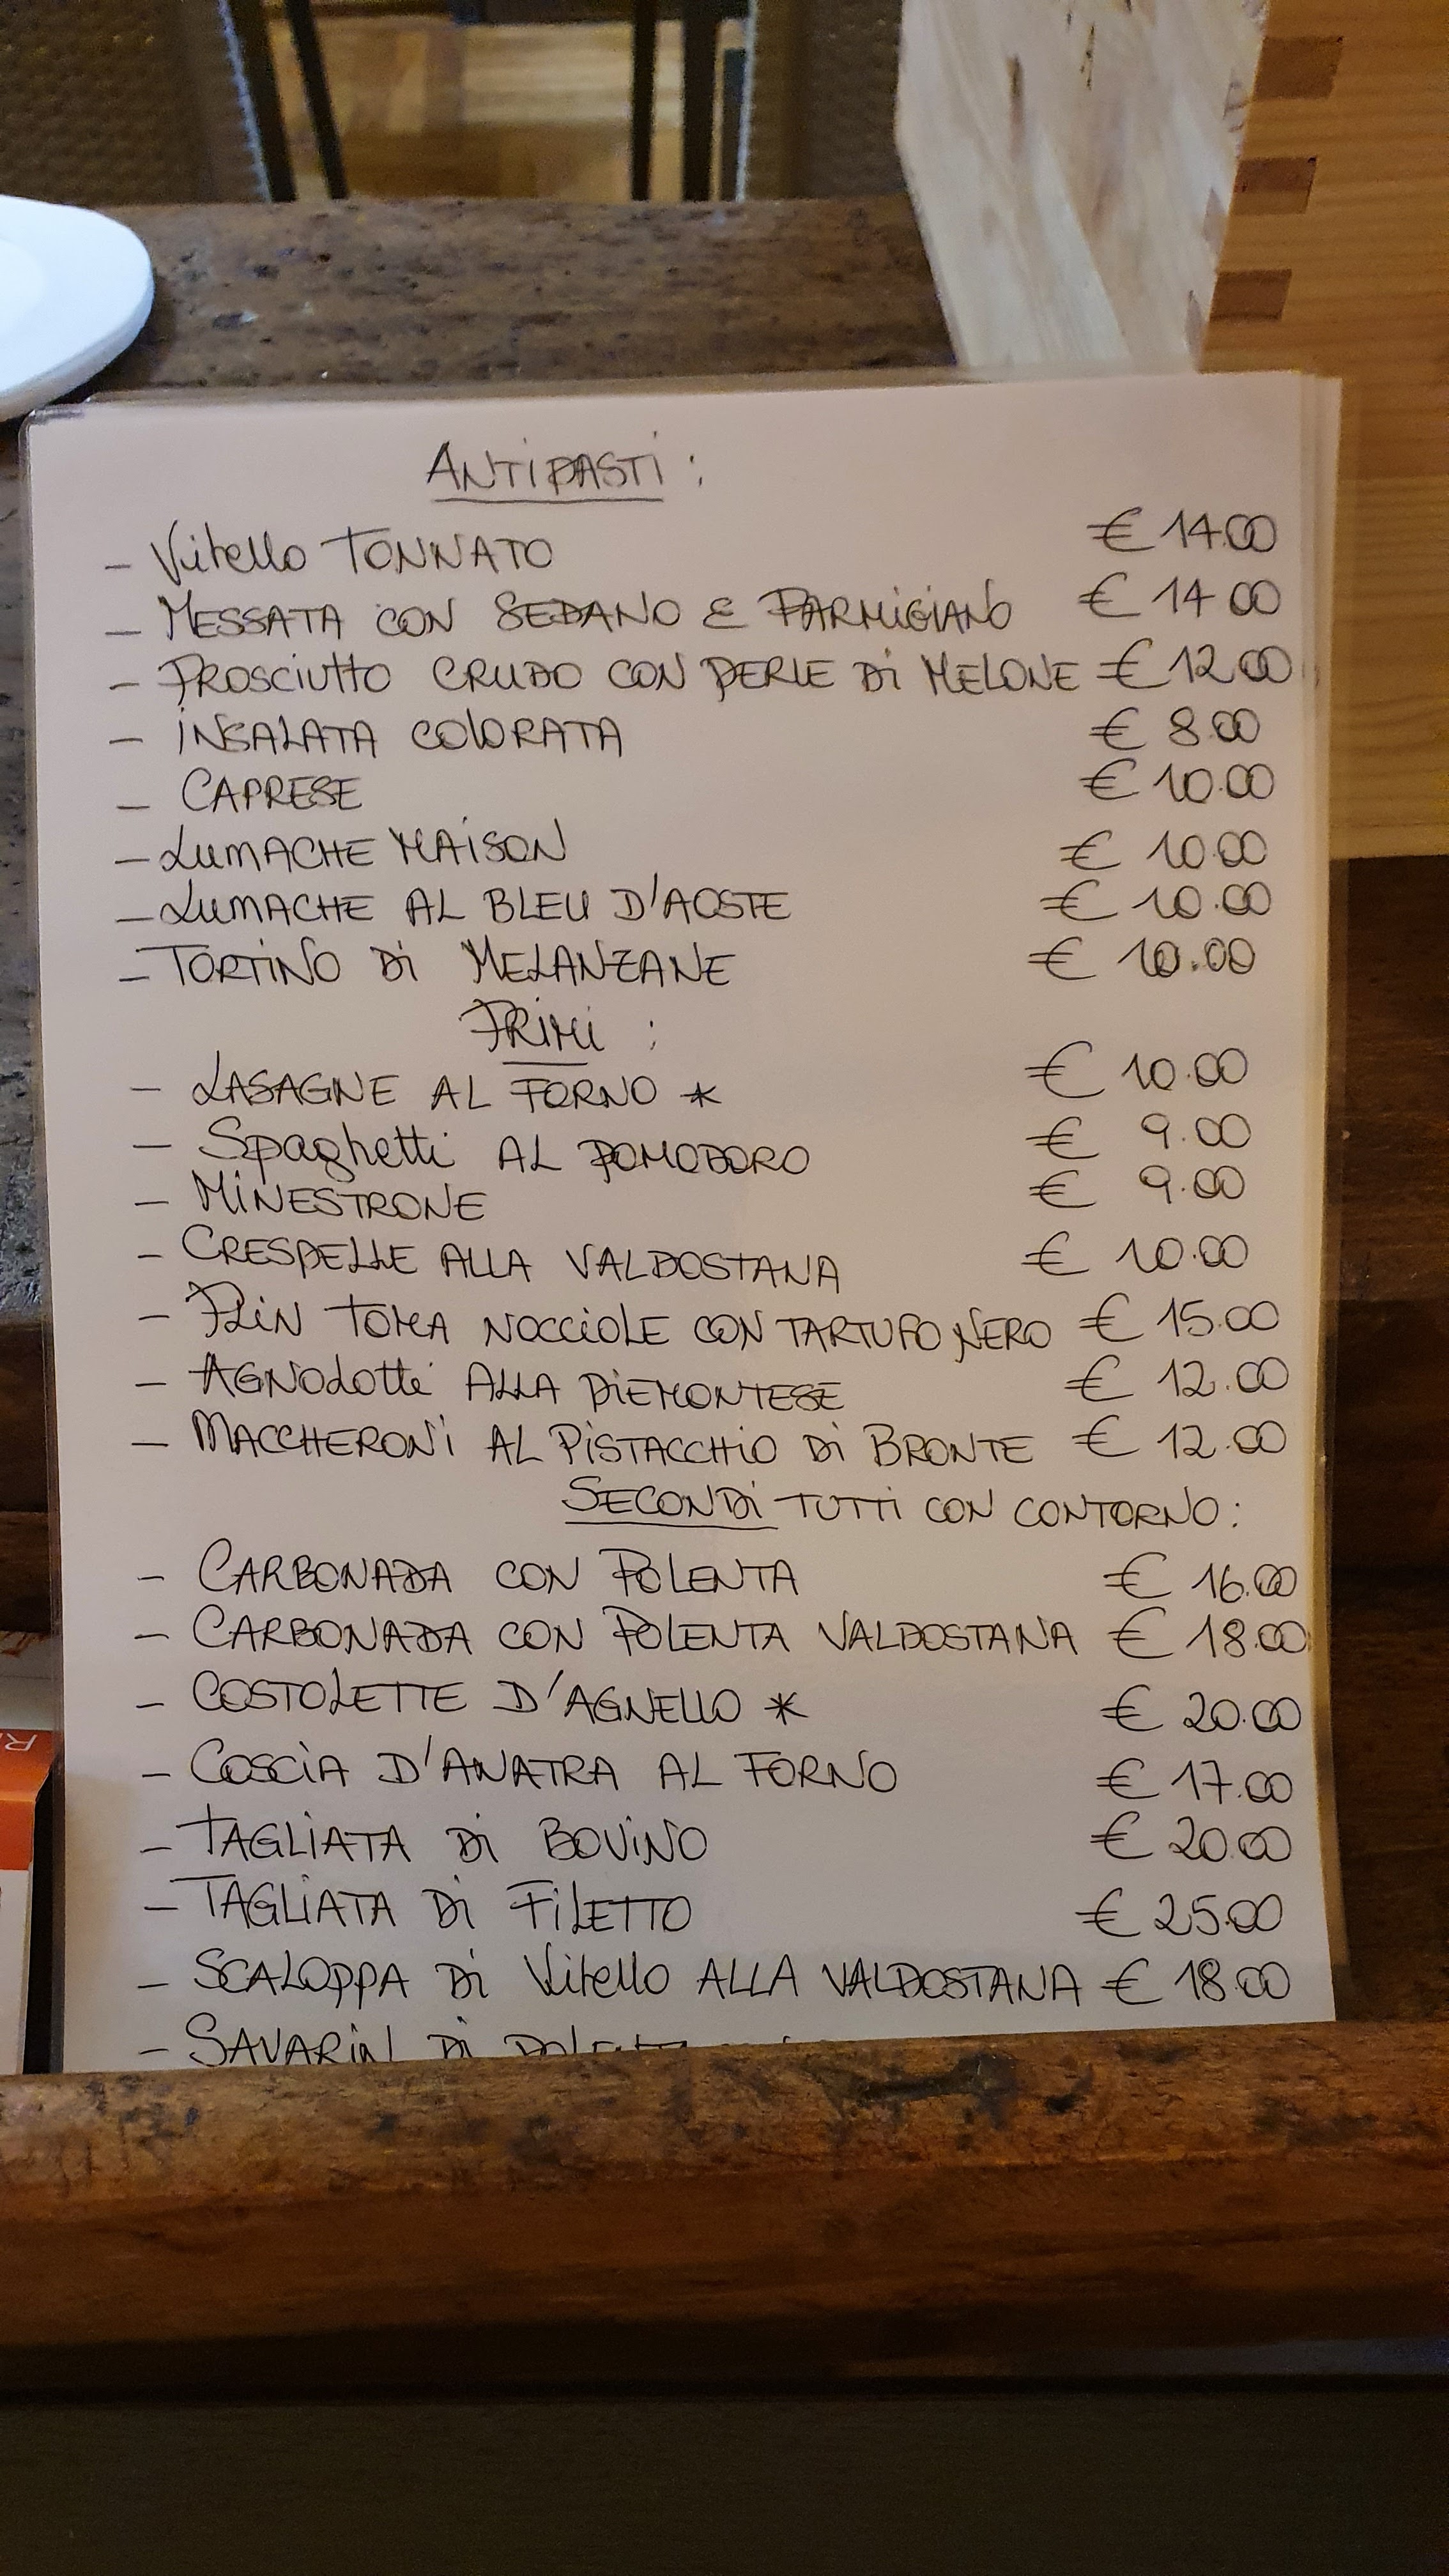 ANTIPASTI :
- Vitello TONNATO € 14.00
- MESSATA CON SEDANO E PARMIGIANO € 14.00
- PROSCIUTTO CRUDO CON PERLE DI MELONE € 12.00
- INSALATA COLORATA € 8.00
- CAPRESE € 10.00
- LUMACHE MAISON € 10.00
- LUMACHE AL BLEU D'AOSTE € 10.00
- TORTINO DI MELANZANE € 10.00
PRIMI :
- LASAGNE AL FORNO * € 10.00
- Spaghetti AL POMODORO € 9.00
- MINESTRONE € 9.00
- CRESPELLE ALLA VALDOSTANA € 10.00
- PLIN TOMA NOCCIOLE CON TARTUFO NERO € 15.00
- AGNOLOTTI ALLA PIEMONTESE € 12.00
- MACCHERONI AL PISTACCHIO DI BRONTE € 12.00
SECONDI TUTTI CON CONTORNO :
- CARBONADA CON POLENTA € 16.00
- CARBONADA CON POLENTA VALDOSTANA € 18.00
- COSTOLETTE D'AGNELLO * € 20.00
- COSCIA D'ANATRA AL FORNO € 17.00
- TAGLIATA DI BOVINO € 20.00
- TAGLIATA DI FILETTO € 25.00
- SCALOPPA DI Vitello ALLA VALDOSTANA € 18.00
- SAVARIN DI